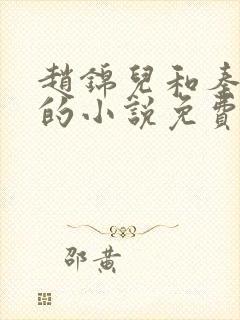 趙錦兒和秦
的小說免費
邵黃